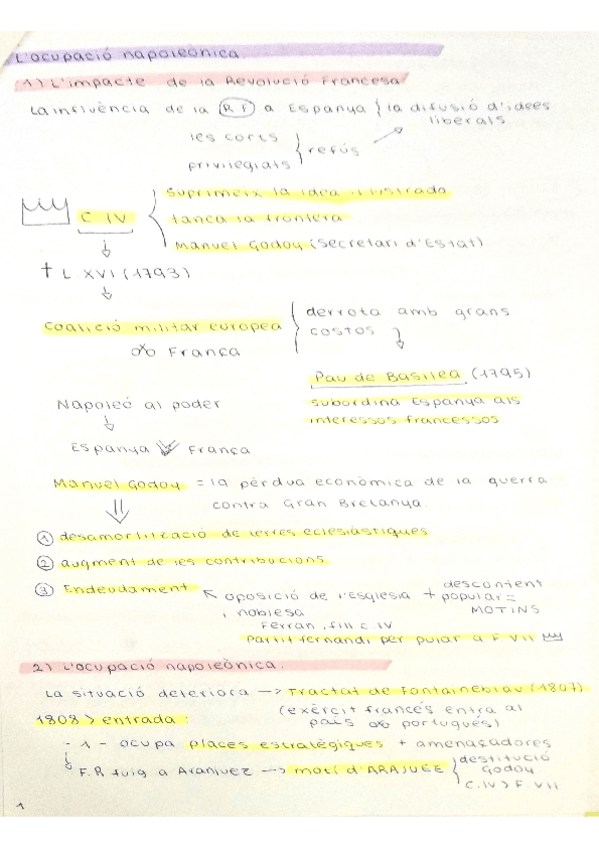 L'ocupació napoleònica.
1) L'impacte de la Revolució Francesa
La influència de la RF a Espanya } la difusió d'idees
liberals
les corts
privilegiats } refús
C IV { suprimeix la idea il·lustrada
tanca la frontera
Manuel Godoy (Secretari d'Estat)
† L XVI (1793)
Coalició militar europea { derrota amb grans
costos
França
Pau de Basilea (1795)
subordina Espanya als
interessos francessos
Napoleó al poder
Espanya França
Manuel Godoy = la pèrdua econòmica de la guerra
contra Gran Bretanya.
① desamortització de terres eclesiàstiques
② augment de les contribucions
③ Endeudament
oposició de l'esglesia + descontent
popular =
MOTINS
i noblesa
Ferran, fill C IV
Partit fernandí per pujar a F VII
2) L'ocupació napoleònica.
La situació deteriora —> Tractat de Fontainebleau (1807)
(exèrcit francès entra al
país portuguès)
1808 > entrada:
- 1 - ocupa places estratègiques + amenaçadores
F.R fuig a Aranjuez —> motí d'ARAJUEE { destitució
Godoy
C.IV > F.VII
1